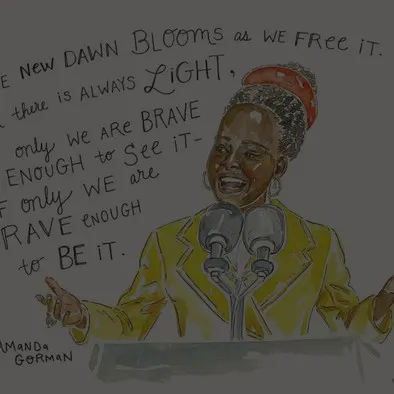 E NEW DAWN BLOOMS as WE FREE iT.
there is ALWAYS LiGHT,
only WE ARE BRAVE
ENOUGH to SEE iT-
F only WE are
RAVE ENOUGH
to BE iT.
MANDA
GORMAN